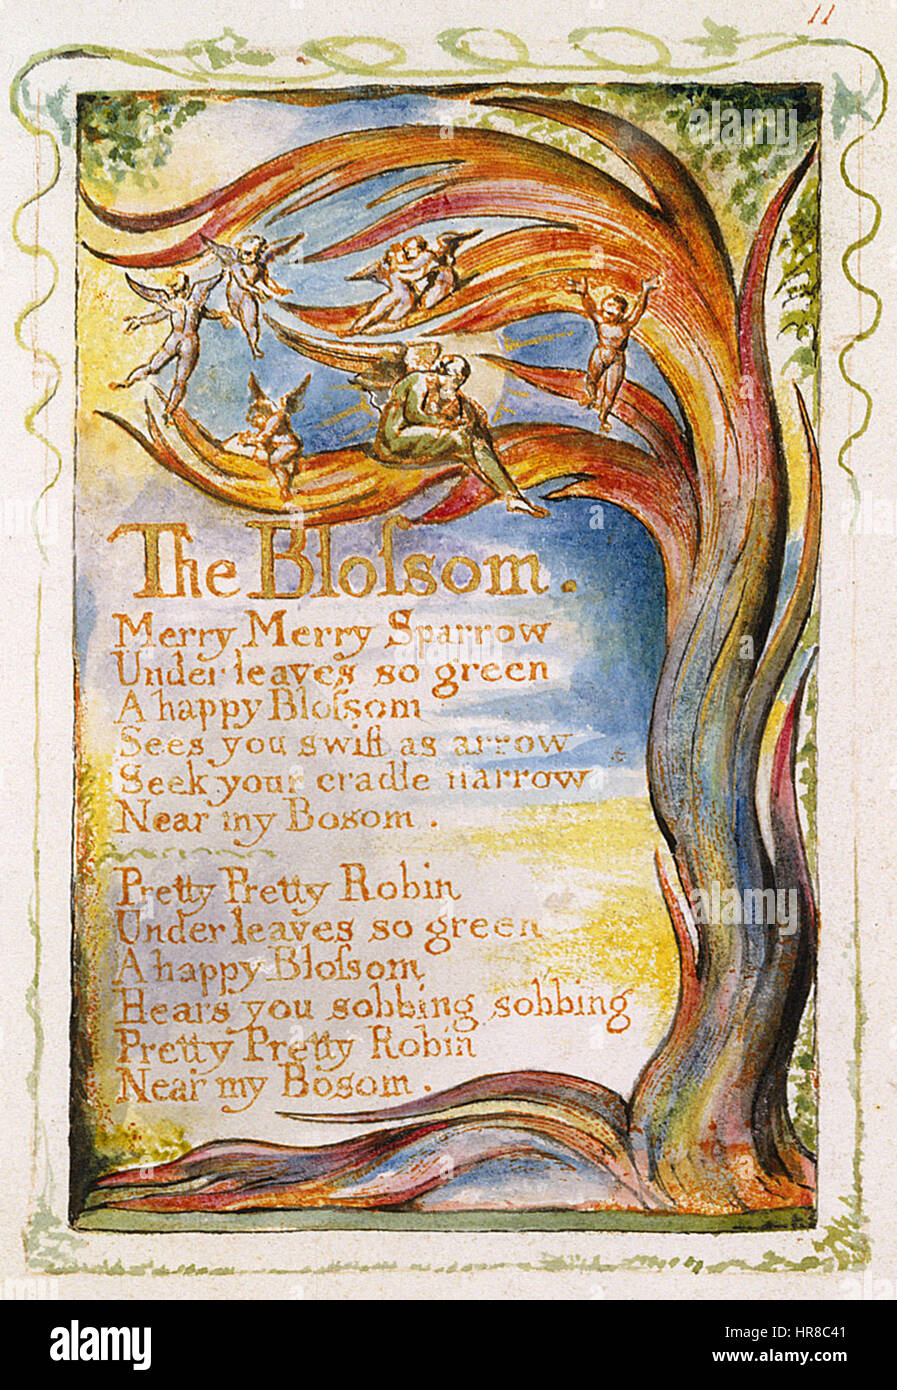 11
The Bloſsom.
Merry Merry Sparrow
Under leaves so green
A happy Bloſsom
Sees you swift as arrow
Seek your cradle narrow
Near my Bosom.
Pretty Pretty Robin
Under leaves so green
A happy Bloſsom
Hears you sobbing sobbing
Pretty Pretty Robin
Near my Bosom.
alamy stock photo
HR8C41
www.alamy.com